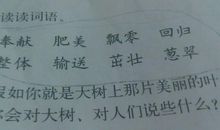 读读词语。
奉献 肥美 飘零 回归
整体 输送 茁壮 葱翠
假如你就是大树上那片美丽的叶
你会对大树、对人们说些什么?